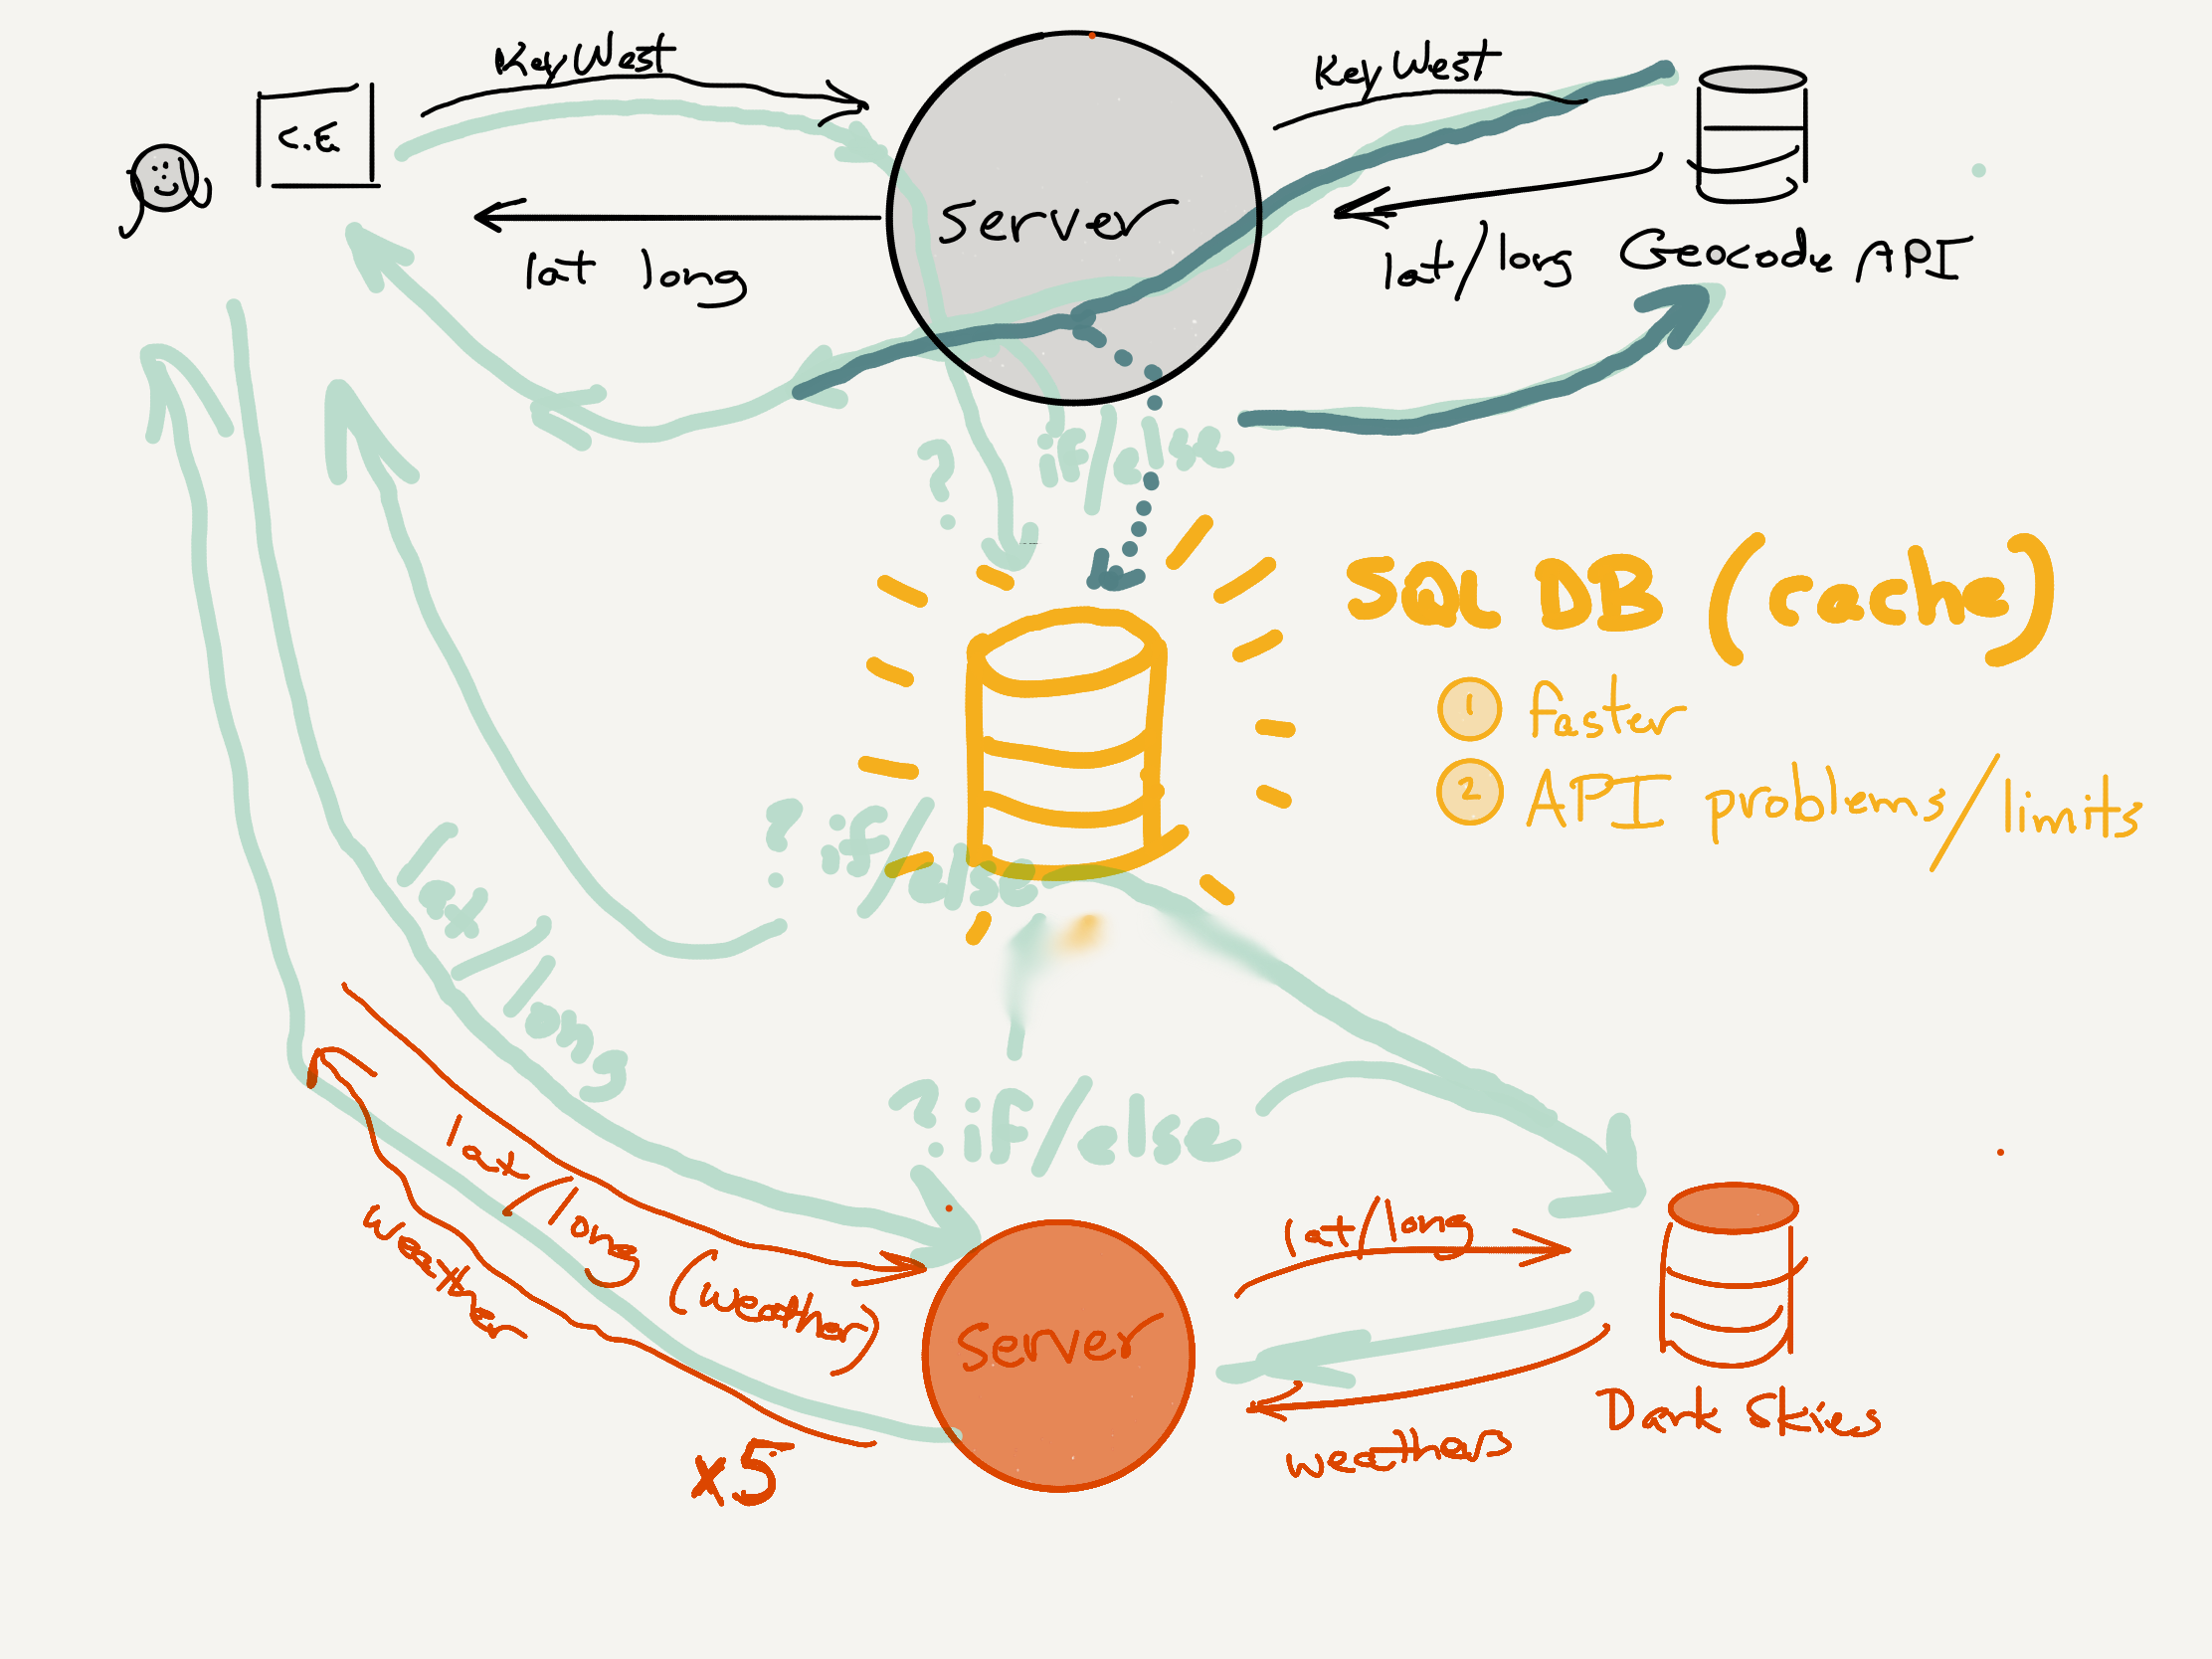 Key West
Key West
server
lat long
lat/long
Geocode API
? if/else
SQL DB (cache)
1 faster
2 API problems/limits
? if/else
lat/long
? if/else
lat/long
(weather)
weather
server
lat/long
weathers
Dark Skies
x5